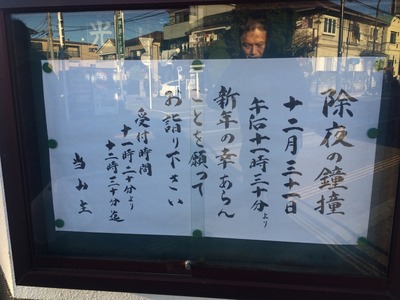 除夜の鐘撞
十二月三十一日
午后十一時三十分より
新年の幸あらん
ことを願って
お詣り下さい
受付時間
十一時二十分より
十二時三十分迄
当山主